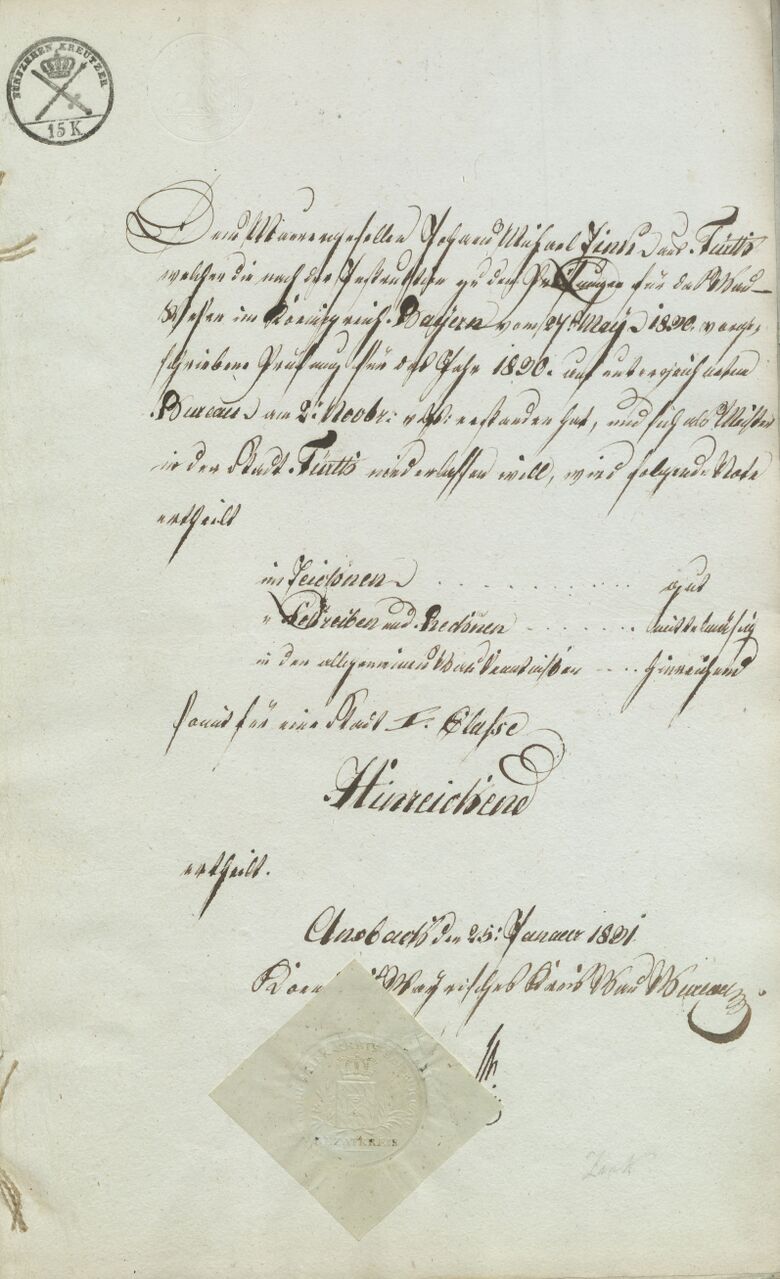 FÜNFZEHEN KREUTZER
15 K.
Dem Maurergesellen Johann Michael Zink aus Fürth
welcher die nach der Instruktion zu den Prüfungen für das Bau-
Wesen im Koenigreich Bayern vom 27t May 1830 vorge-
schriebene Prüfung für das Jahr 1830. am unterzeichneten
Bureau am 2t Novbr: erstanden hat, und sich als Meister
in der Stadt Fürth niederlassen will, wird folgende Note
ertheilt
im Zeichnen . . . . . . . . . . . . gut
" Schreiben und Rechnen . . . . . . . mittelmäsig
in den allgemeinen Bau Kenntnißen . . . . hinreichend
somit für eine Stadt I. Classe
Hinreichend
ertheilt.
Ansbach den 25t Januar 1831
Koen Bayrisches Kreis Bau Bureau
REZATKREIS
Zink